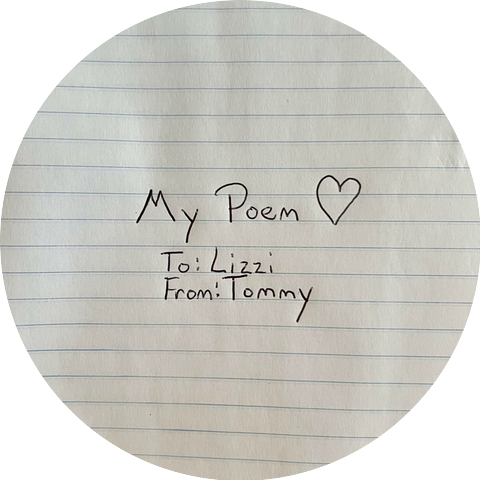 My Poem ♡
To: Lizzi
From: Tommy